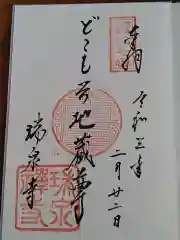 奉拝
令和三年
二月廿二日
どこも苦地蔵尊
瑞泉寺